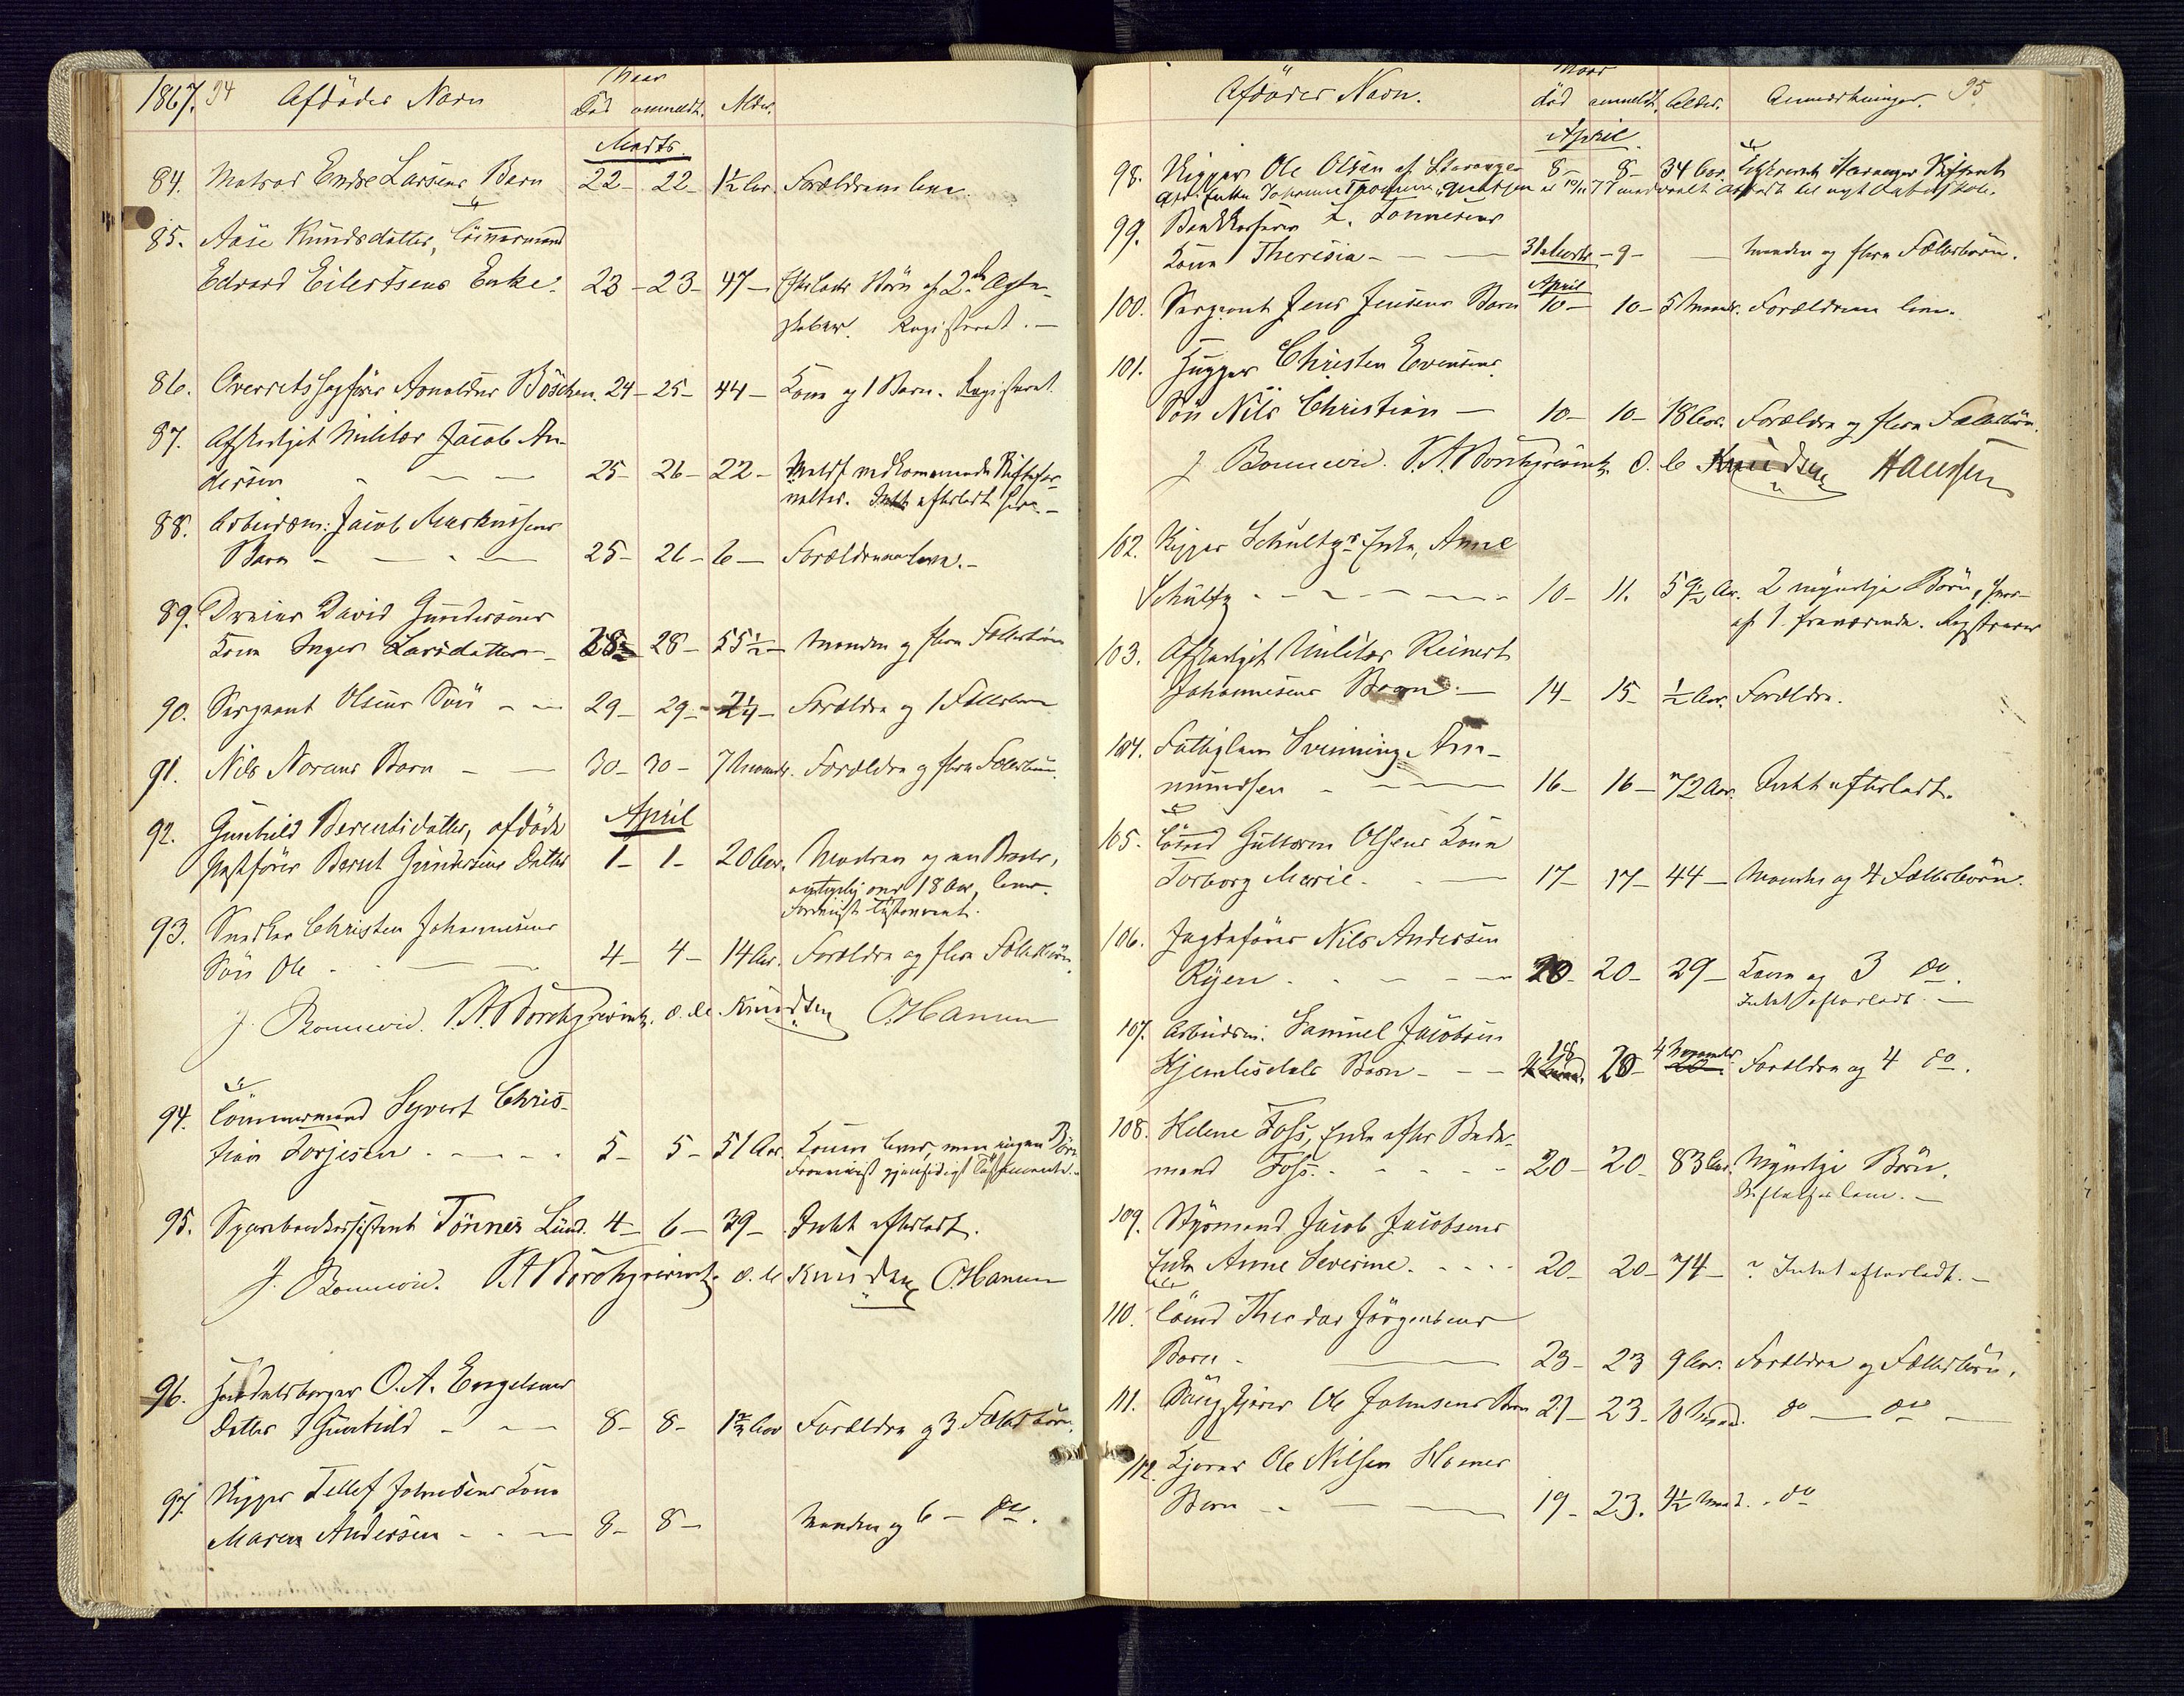 1867. 94 Afdødes Navn Naar
Død anmeldt. Alder.
Marts.
84. Matros Endre Larsens Barn 22 - 22 - 1½ Aar. Forældrene leve.
85. Aase Knudsdatter, Tømmermand
Edvard Eilertsens Enke. 23 - 23 - 47 - Efterladt Børn af 2de Ægte-
skaber. Registreret. -
86. Overretssagfører Arnoldus Böschen. 24 - 25 - 44 - Kone og 1 Barn. Registreret
87. Afskediget Militær Jacob An-
dersen - - - 25 - 26 - 22 - Meldt vedkommende Skiftefor-
valter. Intet efterladt her. -
88. Arbeidsm: Jacob Markussens
Barn - - - 25 - 26 - 6 - Forældrene leve. -
89. Dreier David Gundersens
Kone Inger Larsdatter - 28 - 28 - 55½ - Manden og flere Fællesbørn
90. Sergeant Olsens Søn - - 29 - 29 - 2¼ - Forældre og 1 Fællesbarn
91. Nils Norens Barn - - 30 - 30 - 7 Maaneder. Forældre og flere Fællesbørn.
April
92. Gunhild Berentsdatter, afdøde
Bernt Gundersens Datter 1 - 1 - 20 Aar. Moderen og en Broder,
over 18 Aar, lever.
Testament.
93. Snedker Christen Johannesens
Søn Ole - - 4 - 4 - 14 Aar. Forældre og flere Fællesbørn.
J. Bonnevie. P.A. Borchgrevink. O. C. Knudsen O. Hansen
94. Tømmermand Syvert Chris-
tian Torjesen - - - 5 - 5 - 51 Aar. Konen lever, men ingen Børn
gjensidigt Testamente. -
95. Sparebankassistent Tönnes Lund. 4 - 6 - 39 - Intet efterladt.
J. Bonnevie. P A Borchgrevink. O. C. Knudsen O. Hansen
96. Handelsborger O. A. Engelsens
Datter Gunhild - - 8 - 8 - 1⅔ Aar Forældre og 3 Fællesbørn.
97. Skipper Tellef Johnsens Kone
Maren Andersen - - 8 - 8 - Manden og 6 - do.
Afdødes Navn. Naar
død anmeldt. Alder. Anmærkninger. 95.
April.
98. Skipper Ole Olsen af Stavanger 8 - 8 - 34 Aar. Stavanger Skifteret
99. Bankkasserer L. Tönnesens
Kone Theresia - - 31 Marts - 9 - - Manden og flere Fællesbørn.
April
100. Sergeant Jens Jensens Barn 10 - 10 - 5 Maaneder. Forældrene leve.
101. Hugger Christen Evensens
Søn Nils Christian - 10 - 10 - 18 Aar. Forældre og flere Fællesbørn.
J Bonnevie. P.A. Borchgrevink. O. C. Knudsen Hansen
102. Skipper Schultz's Enke, Anne
Schultz - - - - 10 - 11. 59½ Aar. 2 myndige Børn, hvor-
af 1 fraværende. Registreret
103. Afskediget Militær Reinert
Johannesens Barn. - 14 - 15 - ½ Aar. Forældre.
104. Fattiglem Svenning Am-
mundsen - - - 16 - 16 - 72 Aar. Intet efterladt.
105. Tømd Guttorm Olsens Kone
Torborg Marie. - - 17 - 17 - 44 - Manden og 4 Fællesbørn.
106. Jagtefører Nils Andersen
Ryen - - - 20 - 20 - 29 - Kone og 3 do.
Intet efterladt. -
107. Arbeidsm. Samuel Jacobsen
Hjemlisdals Barn - - 18 20 - 4 Maaneder Forældre og 4 do.
108. Helene Foss, Enke efter Bede-
mand Foss. - - - 20 - 20 - 83 Aar. Myndige Børn.
109. Styrmand Jacob Jacobsens
Enke Anne Severine. - - 20 - 20 - 74 - ? Intet efterladt. -
110. Tømd Theodor Jörgensens
Barn - - 23 - 23 9 Aar. Forældre og Fællesbørn.
111. Ole Johnsens Barn 21 - 23 - 10 Maaned. do - do -
112. Kjører Ole Nilsen Homes
Barn - - - 19 - 23. 4½ Maaned. - do